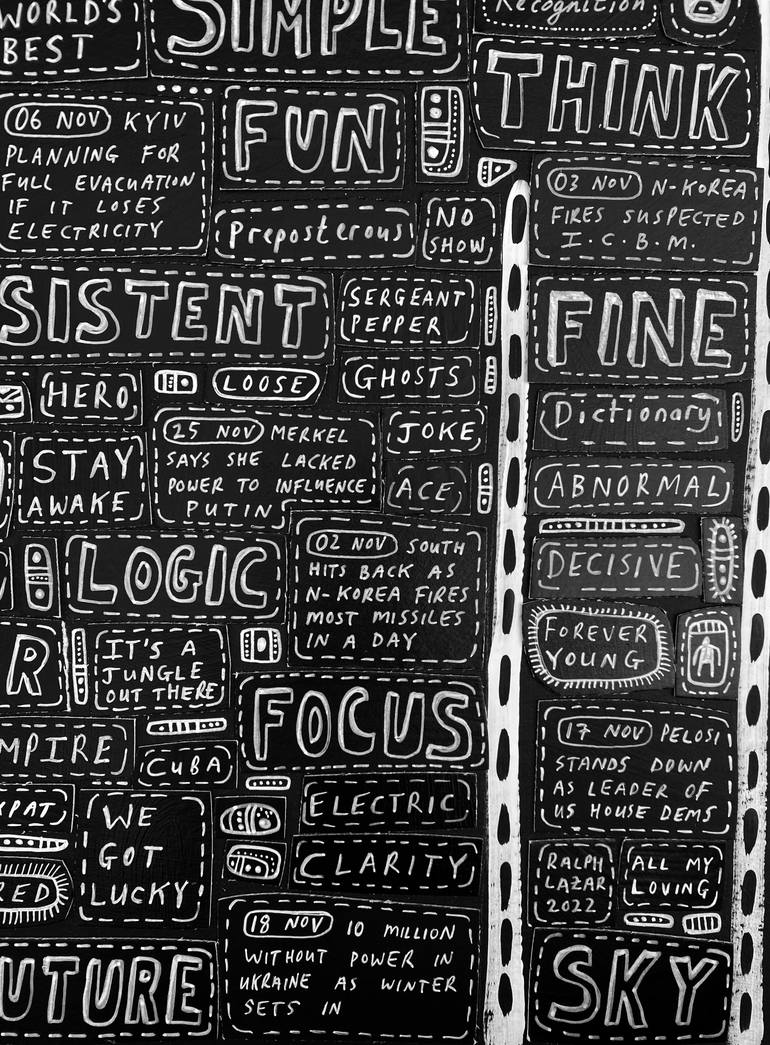 WORLD'S
BEST
SIMPLE
Recognition
THINK
06 NOV KYIV
PLANNING FOR
FULL EVACUATION
IF IT LOSES
ELECTRICITY
FUN
03 NOV N-KOREA
FIRES SUSPECTED
I.C.B.M.
Preposterous
NO
SHOW
SISTENT
SERGEANT
PEPPER
FINE
HERO
LOOSE
GHOSTS
Dictionary
STAY
AWAKE
25 NOV MERKEL
SAYS SHE LACKED
POWER TO INFLUENCE
PUTIN
JOKE
ACE
ABNORMAL
LOGIC
02 NOV SOUTH
HITS BACK AS
N-KOREA FIRES
MOST MISSILES
IN A DAY
DECISIVE
FOREVER
YOUNG
R
IT'S A
JUNGLE
OUT THERE
FOCUS
17 NOV PELOSI
STANDS DOWN
AS LEADER OF
US HOUSE DEMS
MPIRE
CUBA
ELECTRIC
XPAT
WE
GOT
LUCKY
CLARITY
RALPH
LAZAR
2022
ALL MY
LOVING
RED
18 NOV 10 MILLION
WITHOUT POWER IN
UKRAINE AS WINTER
SETS IN
UTURE
SKY